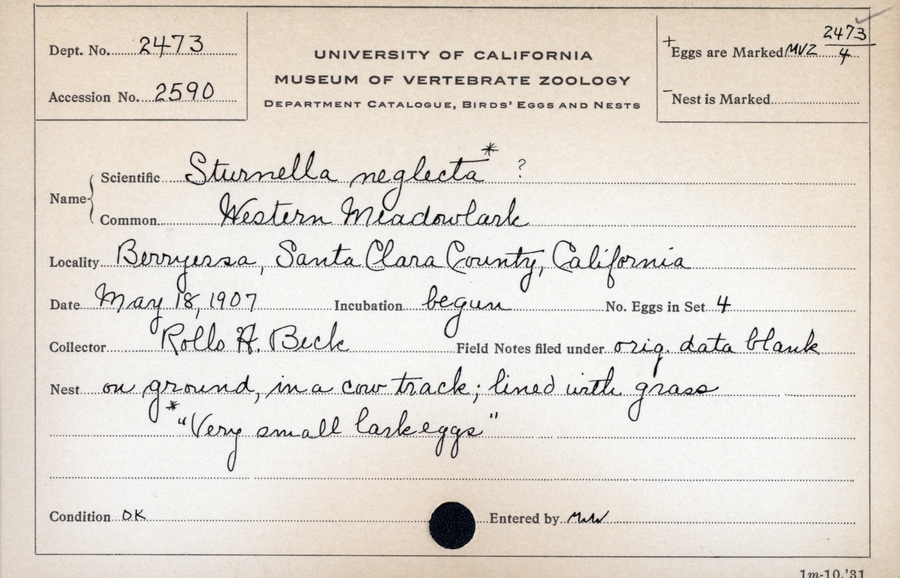 Dept. No. 2473
Accession No. 2590
UNIVERSITY OF CALIFORNIA
MUSEUM OF VERTEBRATE ZOOLOGY
DEPARTMENT CATALOGUE, BIRDS' EGGS AND NESTS
+Eggs are Marked MVZ 2473/4
-Nest is Marked
Name { Scientific Sturnella neglecta* ?
Common Western Meadowlark
Locality Berryessa, Santa Clara County, California
Date May 18, 1907 Incubation begun No. Eggs in Set 4
Collector Rollo H. Beck Field Notes filed under orig. data blank
Nest on ground, in a cow track; lined with grass
*"Very small lark eggs"
Condition OK Entered by
1m-10,'31